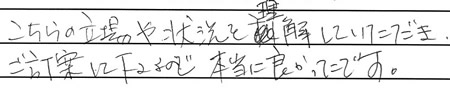 こちらの立場や状況を理解していただき、
ご計案に下さるので本当に良かったです。